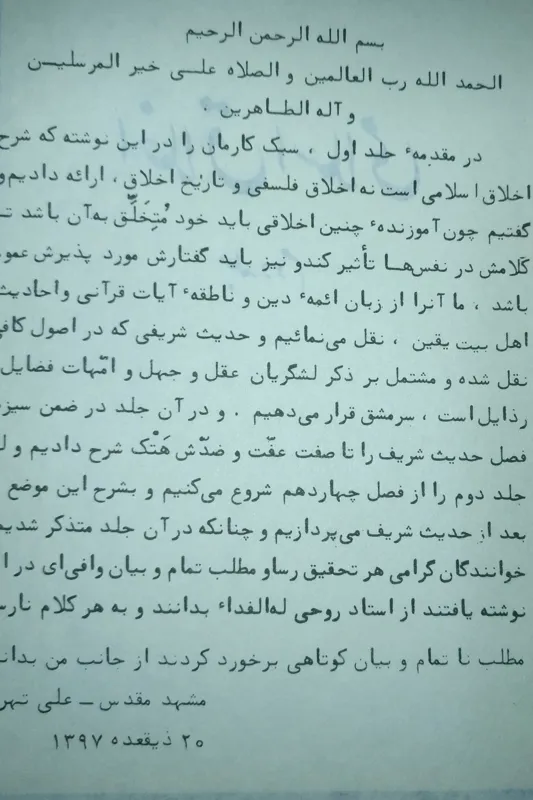 بسم الله الرحمن الرحیم
الحمد الله رب العالمین و الصلاه علـی خیر المرسلیـن
و آله الطـاهرین .
در مقدمهٔ جلد اول ، سبک کارمان را در این نوشته که شرح
اخلاق اسلامی است نه اخلاق فلسفی و تاریخ اخلاق ، ارائه دادیم و
گفتیم چون آموزندهٔ چنین اخلاقی باید خود مُتِخَلِّق به‌آن باشد تـ
کلامش در نفس‌هـا تأثیر کند و نیز باید گفتارش مورد پذیرش عمو
باشد ، ما آنرا از زبان ائمهٔ دین و ناطقهٔ آیات قرآنی و احادیث
اهل بیت یقین ، نقل می‌نمائیم و حدیث شریفی که در اصول کافی
نقل شده و مشتمل بر ذکر لشگریان عقل و جهل و امّهات فضایل
رذایل است ، سرمشق قرار می‌دهیم . و در آن جلد در ضمن سیز
فصل حدیث شریف را تا صفت عفّت و ضدّش هَتْک شرح دادیم و ا
جلد دوم را از فصل چهاردهم شروع می‌کنیم و بشرح این موضع
بعد از حدیث شریف می‌پردازیم و چنانکه در آن جلد متذکر شدیم
خوانندگان گرامی هر تحقیق رسا و مطلب تمام و بیان وافی‌ای در ا
نوشته یافتند از استاد روحی له‌الفداء بدانند و به هر کلام نارس
مطلب نا تمام و بیان کوتاهی برخورد کردند از جانب من بدانـ
مشهد مقدس ــ علی تهر
۲۰ ذیقعده ۱۳۹۷